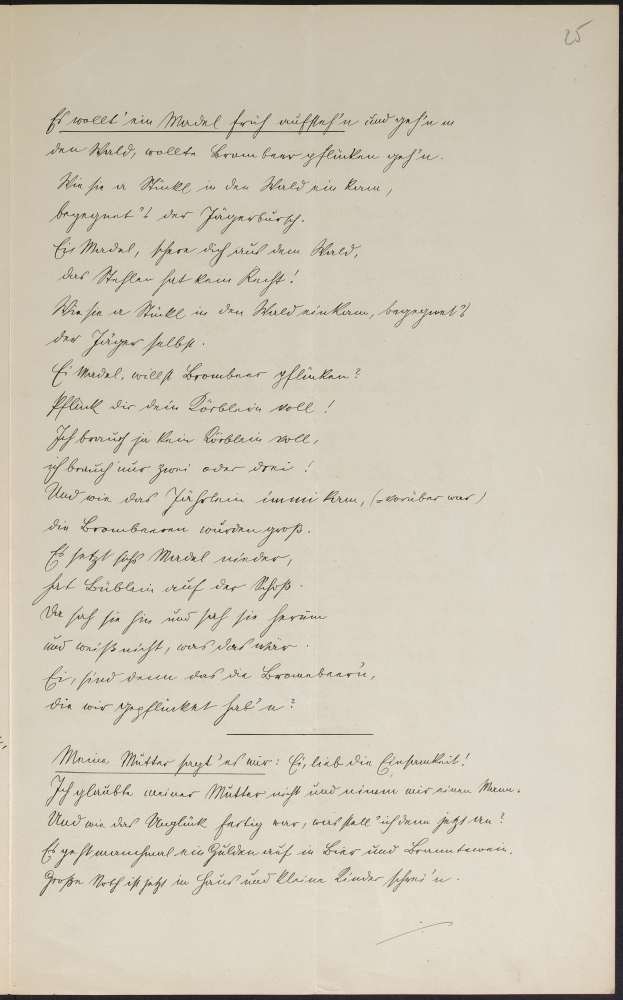 25
Es wollt' ein Madel früh aufsteh'n und geh'n in
den Wald, wollte Brombeer pflücken geh'n.
Wie sie a Stückl in den Wald ein kam,
begegnet's der Jägerbursch.
Ei Madel, schere dich aus dem Wald,
das Stehlen hat kein Recht!
Wie sie a Stückl in den Wald einkam, begegnet's
der Jäger selbst.
Ei Madel, willst Brombeer pflücken?
Pflück dir dein Körblein voll!
Ich brauch ja kein Körblein voll,
ich brauch nur zwei oder drei!
Und wie das Jährlein immi kam, (= vorüber war)
die Brombeeren wurden groß.
Es setzt sich's Madel nieder,
hat Büblein auf der Schoß.
Da sah sie hin und sah sie herum
und weiß nicht, was das wär.
Ei, sind denn das die Brombeer'n,
die wir gepflücket hab'n?
Meine Mutter sagt' es mir: Ei, lieb die Einsamkeit!
Ich glaubte meiner Mutter nicht und nimm mir einen Mann.
Und wie das Unglück fertig war, was stell' ich denn jetzt an?
Es geht manchmal ein Gulden auf in Bier und Branntewein.
Große Noth ist jetzt im Haus und kleine Kinder schrei'n.